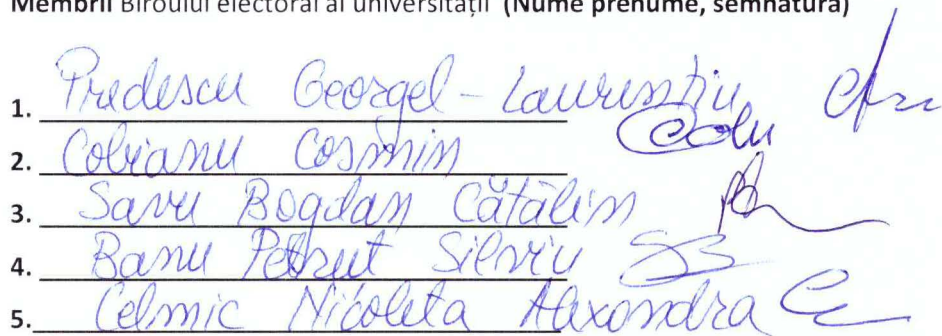 Membrii Biroului electoral al universității (Nume prenume, semnătura)
1. Predescu Georgel-Laurențiu
2. Cobianu Cosmin
3. Savu Bogdan Cătălin
4. Banu Petruț Silviu
5. Celmic Nicoleta Alexandra